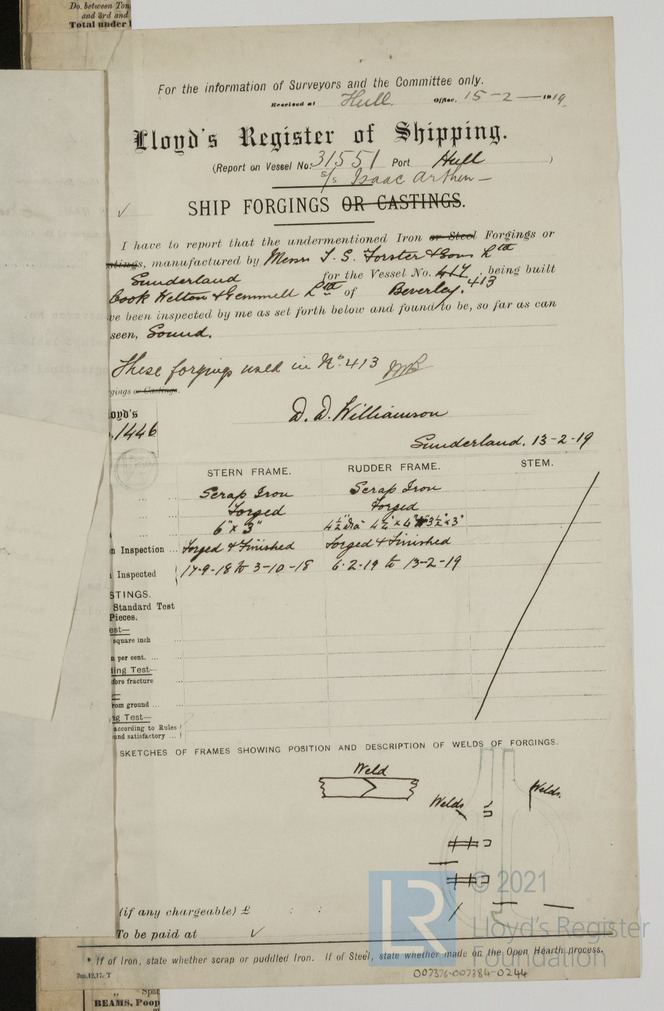 Do. between Ton
and 3rd and
Total under
For the information of Surveyors and the Committee only.
Received at Hull Office, 15-2-1919.
Lloyd's Register of Shipping.
(Report on Vessel No. 31551 Port Hull )
s/s Isaac Arthur
✓ SHIP FORGINGS OR CASTINGS.
I have to report that the undermentioned Iron or Steel Forgings or
stings, manufactured by Messrs T. S. Forster & Sons Ltd
Sunderland for the Vessel No. 417 413, being built
Cook Welton & Gemmell Ltd of Beverley.
ve been inspected by me as set forth below and found to be, so far as can
seen, Sound.
These forgings used in No. 413
gings or Castings.
loyd's
1446
D. D. Williamson
Sunderland. 13-2-19
STERN FRAME. RUDDER FRAME. STEM.
Scrap Iron Scrap Iron
Forged Forged
6" x 3"
n Inspection ... Forged & Finished Forged & Finished
Inspected 17-9-18 to 3-10-18 6-2-19 to 13-2-19
STINGS.
Standard Test
Pieces.
est—
square inch ...
n per cent. ...
ding Test—
fore fracture ...
rom ground ...
ng Test—
according to Rules
und satisfactory ...
SKETCHES OF FRAMES SHOWING POSITION AND DESCRIPTION OF WELDS OF FORGINGS.
Weld
Welds Welds.
(if any chargeable) £ : :
To be paid at ✓
* If of Iron, state whether scrap or puddled Iron. If of Steel, state whether made on the Open Hearth process.
LR © 2021
Lloyd's Register
Foundation
007376-007384-0244
BEAMS, Poop